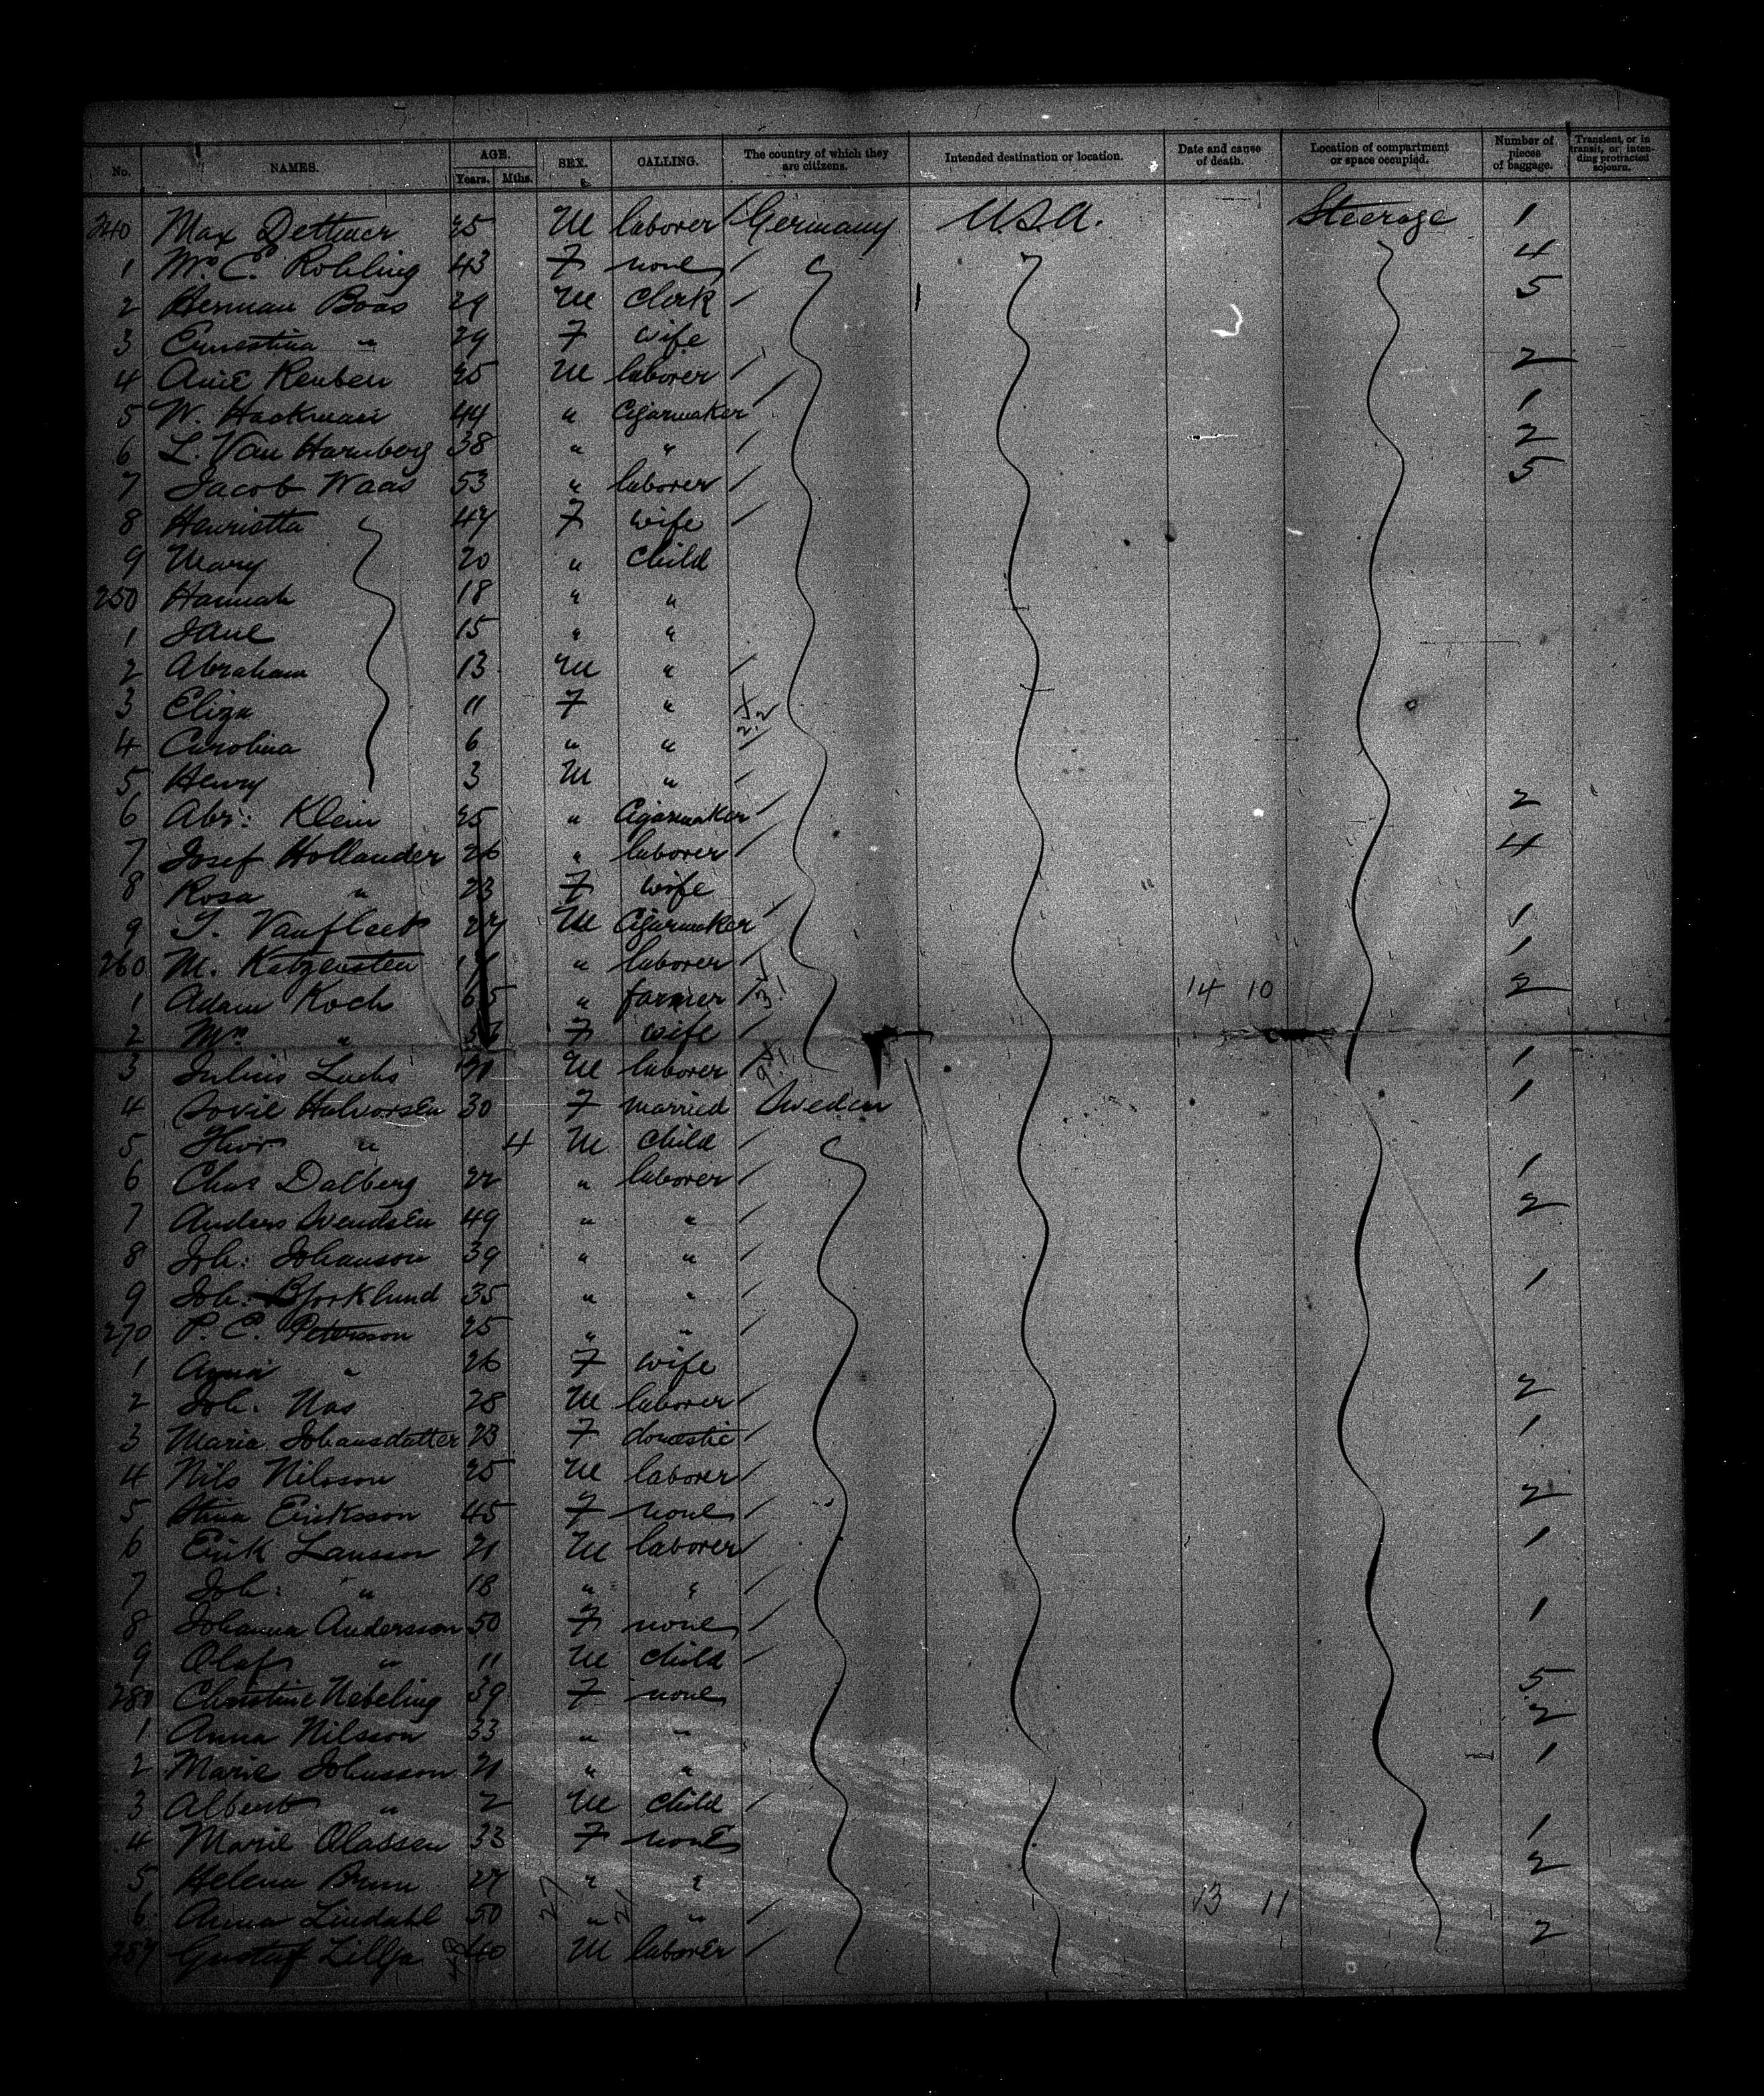 No. NAMES. AGE. Years. Mths. SEX. CALLING. The country of which they are citizens. Intended destination or location. Date and cause of death. Location of compartment or space occupied. Number of pieces of baggage. Transient, or in transit, or intending protracted sojourn.
240 Max Dettmer 25 M laborer Germany U.S.A. Steerage 1
1 Mrs C. Rohling 43 F none 4
2 Herman Boas 29 M Clerk 5
3 Ernestina " 29 F wife
4 Reuben 25 M laborer 2
5 W. Hackman 44 " Cigarmaker 1
6 L. Van Harnberg 38 " " 2
7 Jacob Waas 53 " laborer 5
8 Henrietta 47 F wife
9 Mary 20 " Child
250 Hannah 18 " "
1 Jane 15 " "
2 Abraham 13 M "
3 Eliza 11 F "
4 Carolina 6 " "
5 Henry 3 M "
6 Abr: Klein 25 " Cigarmaker 2
7 Josef Hollander 26 " laborer 4
8 Rosa " 23 F wife
9 Vanfleet M Cigarmaker 1
260 M. Katzenstein " laborer 1
1 Adam Koch 65 " farmer 14 10 2
2 Mrs " F wife
3 Julius Lachs M laborer 1
4 Halvorsen 30 F married Sweden 1
5 " 4 M Child
6 Chas Dalberg 22 " laborer 1
7 Anders Svendsen 49 " " 2
8 Joh: Johanson 39 " "
9 Joh: Bjorklund 35 " " 1
270 P. C. Petersson 25 " "
1 Anna " 26 F wife
2 Joh. Nas 28 M laborer 2
3 Maria Johansdatter 23 F domestic 1
4 Nils Nilsson 25 M laborer
5 Stina Eriksson 45 F none 2
6 Erik Larsson 21 M laborer 1
7 Joh: " 18 " "
8 Johanna Andersson 50 F none 1
9 Olaf " 11 M Child
280 Christine Nebeling 39 F none 5
1 Anna Nilsson 33 " " 2
2 Marie Johnsson 21 " " 1
3 Albert " 2 M Child
4 Marie Olassen 33 F none 1
5 Helena Brun 27 " " 2
6 Anna Lindahl 50 " " 13 11
287 Gustaf Lilja 40 M laborer 2